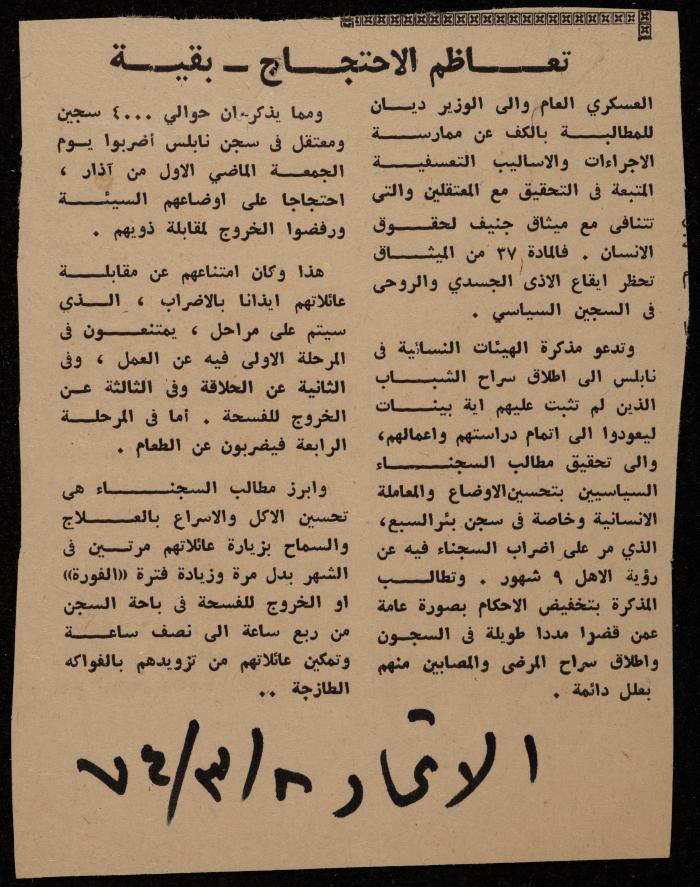 تعاظم الاحتجاج - بقية
العسكري العام والى الوزير ديان
للمطالبة بالكف عن ممارسة
الاجراءات والاساليب التعسفية
المتبعة في التحقيق مع المعتقلين والتي
تتنافى مع ميثاق جنيف لحقوق
الانسان . فالمادة ٣٧ من الميثاق
تحظر ايقاع الاذى الجسدي والروحى
في السجين السياسي .
وتدعو مذكرة الهيئات النسائية في
نابلس الى اطلاق سراح الشباب
الذين لم تثبت عليهم اية بينات
ليعودوا الى اتمام دراستهم واعمالهم،
والى تحقيق مطالب السجناء
السياسيين بتحسين الاوضاع والمعاملة
الانسانية وخاصة في سجن بئر السبع،
الذي مر على اضراب السجناء فيه عن
رؤية الاهل ٩ شهور . وتطالب
المذكرة بتخفيض الاحكام بصورة عامة
عمن قضوا مددا طويلة في السجون
واطلاق سراح المرضى والمصابين منهم
بعلل دائمة .
ومما يذكر ان حوالي ٤٠٠٠ سجين
ومعتقل في سجن نابلس أضربوا يوم
الجمعة الماضي الاول من آذار ،
احتجاجا على اوضاعهم السيئة
ورفضوا الخروج لمقابلة ذويهم .
هذا وكان امتناعهم عن مقابلة
عائلاتهم ايذانا بالاضراب ، الذي
سيتم على مراحل ، يمتنعون في
المرحلة الاولى فيه عن العمل ، وفي
الثانية عن الحلاقة وفي الثالثة عن
الخروج للفسحة . أما في المرحلة
الرابعة فيضربون عن الطعام .
وابرز مطالب السجناء هي
تحسين الاكل والاسراع بالعلاج
والسماح بزيارة عائلاتهم مرتين في
الشهر بدل مرة وزيادة فترة ((الفورة))
او الخروج للفسحة في باحة السجن
من ربع ساعة الى نصف ساعة
وتمكين عائلاتهم من تزويدهم بالفواكه
الطازجة ..
الاتحاد ٨/٣/٧٤